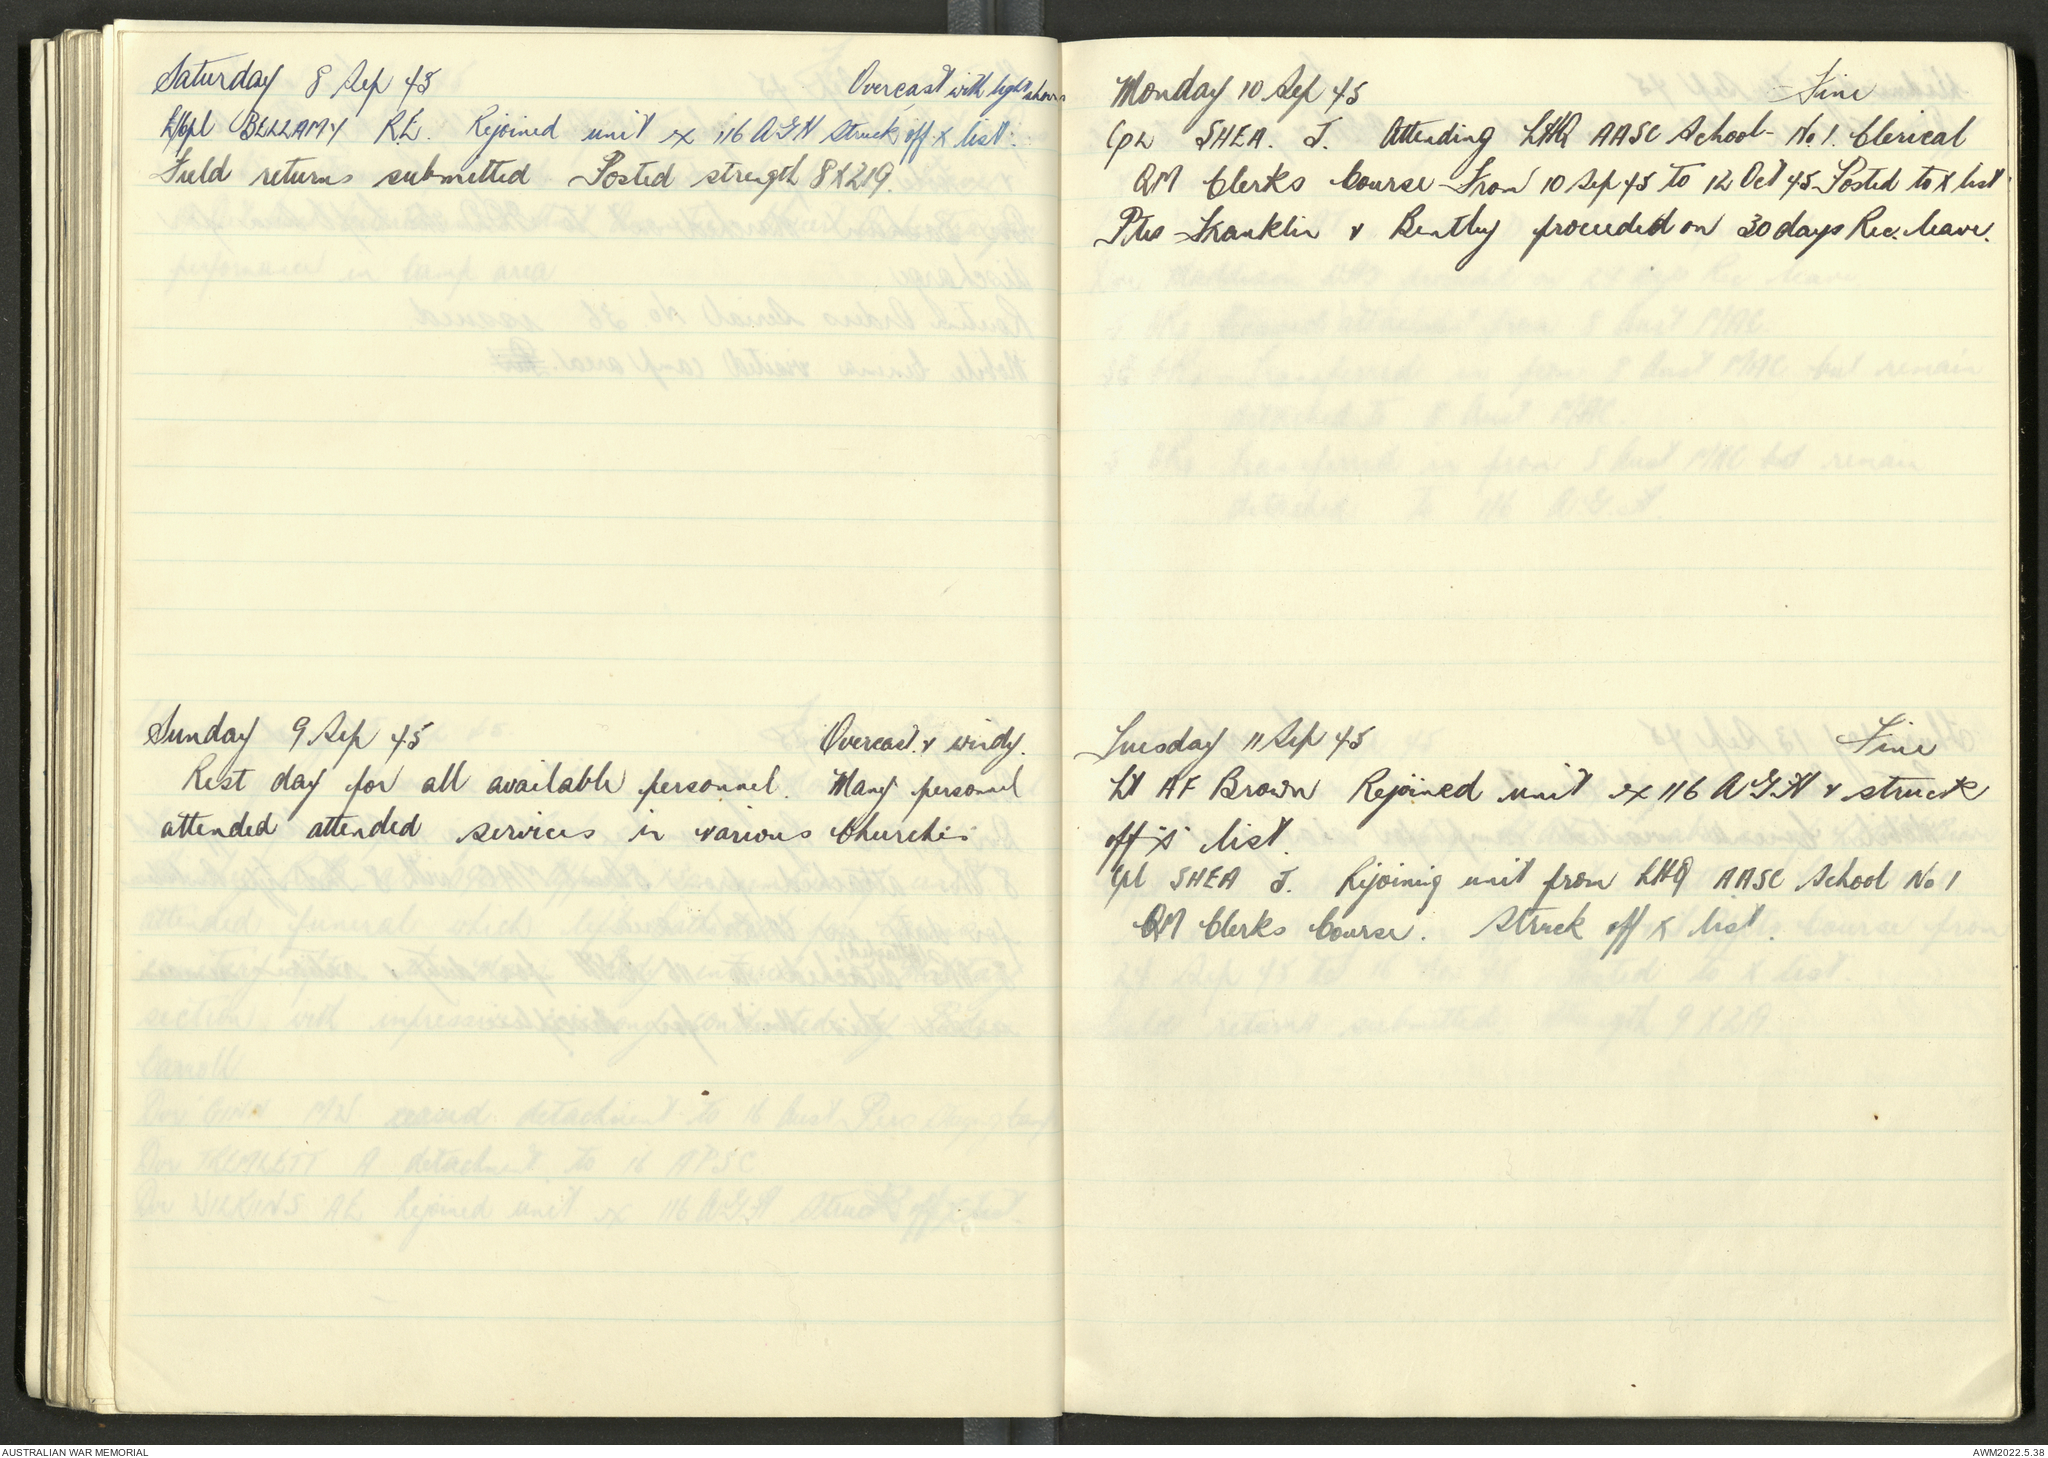 Saturday 8 Sep 45 Overcast with light showers
L/Cpl BELLAMY R.E. Rejoined unit ex 116 AGH Struck off X list.
Field returns submitted Posted strength 8X219.
Sunday 9 Sep 45 Overcast & windy.
Rest day for all available personnel. Many personnel
attended attended services in various Churches
Monday 10 Sep 45 Fine
Cpl SHEA. J. Attending LHQ AASC School - No 1. Clerical
QM Clerks Course - From 10 Sep 45 to 12 Oct 45 - Posted to X list
Ptes Franklin & Bentley proceeded on 30 days Rec. leave.
Tuesday 11 Sep 45 Fine
Lt AF Brown Rejoined unit ex 116 AGH & struck
off X list.
Cpl SHEA J. Rejoining unit from LHQ AASC School No 1
QM Clerks Course. Struck off X list.
AUSTRALIAN WAR MEMORIAL AWM2022.5.38